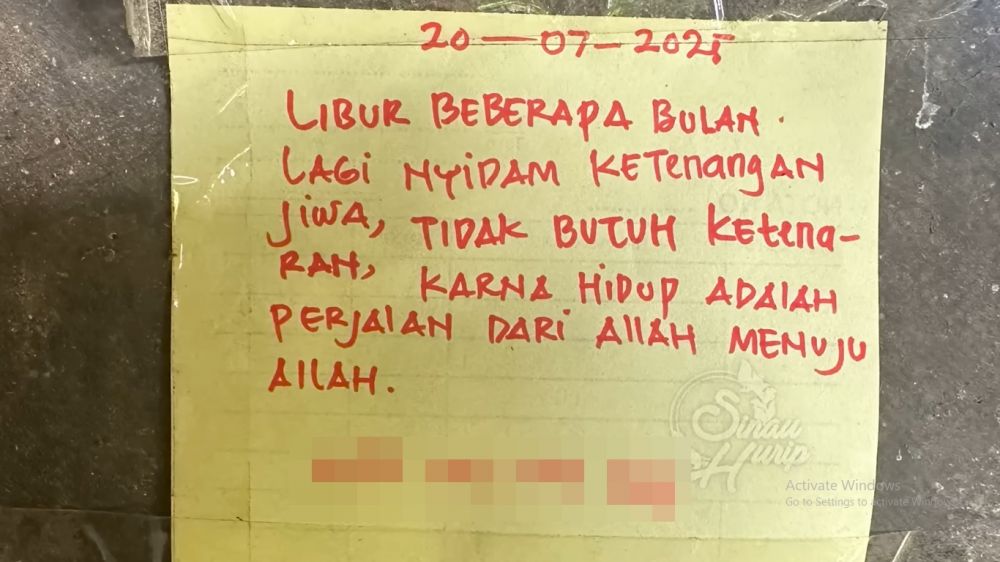 20 — 07 — 2025
LIBUR BEBERAPA BULAN.
LAGI NYIDAM KETENANGAN
JIWA, TIDAK BUTUH KETENA-
RAN, KARNA HIDUP ADALAH
PERJALAN DARI ALLAH MENUJU
ALLAH.
Sinau
Hurip
Activate Windows
Go to Settings to activate Windows.